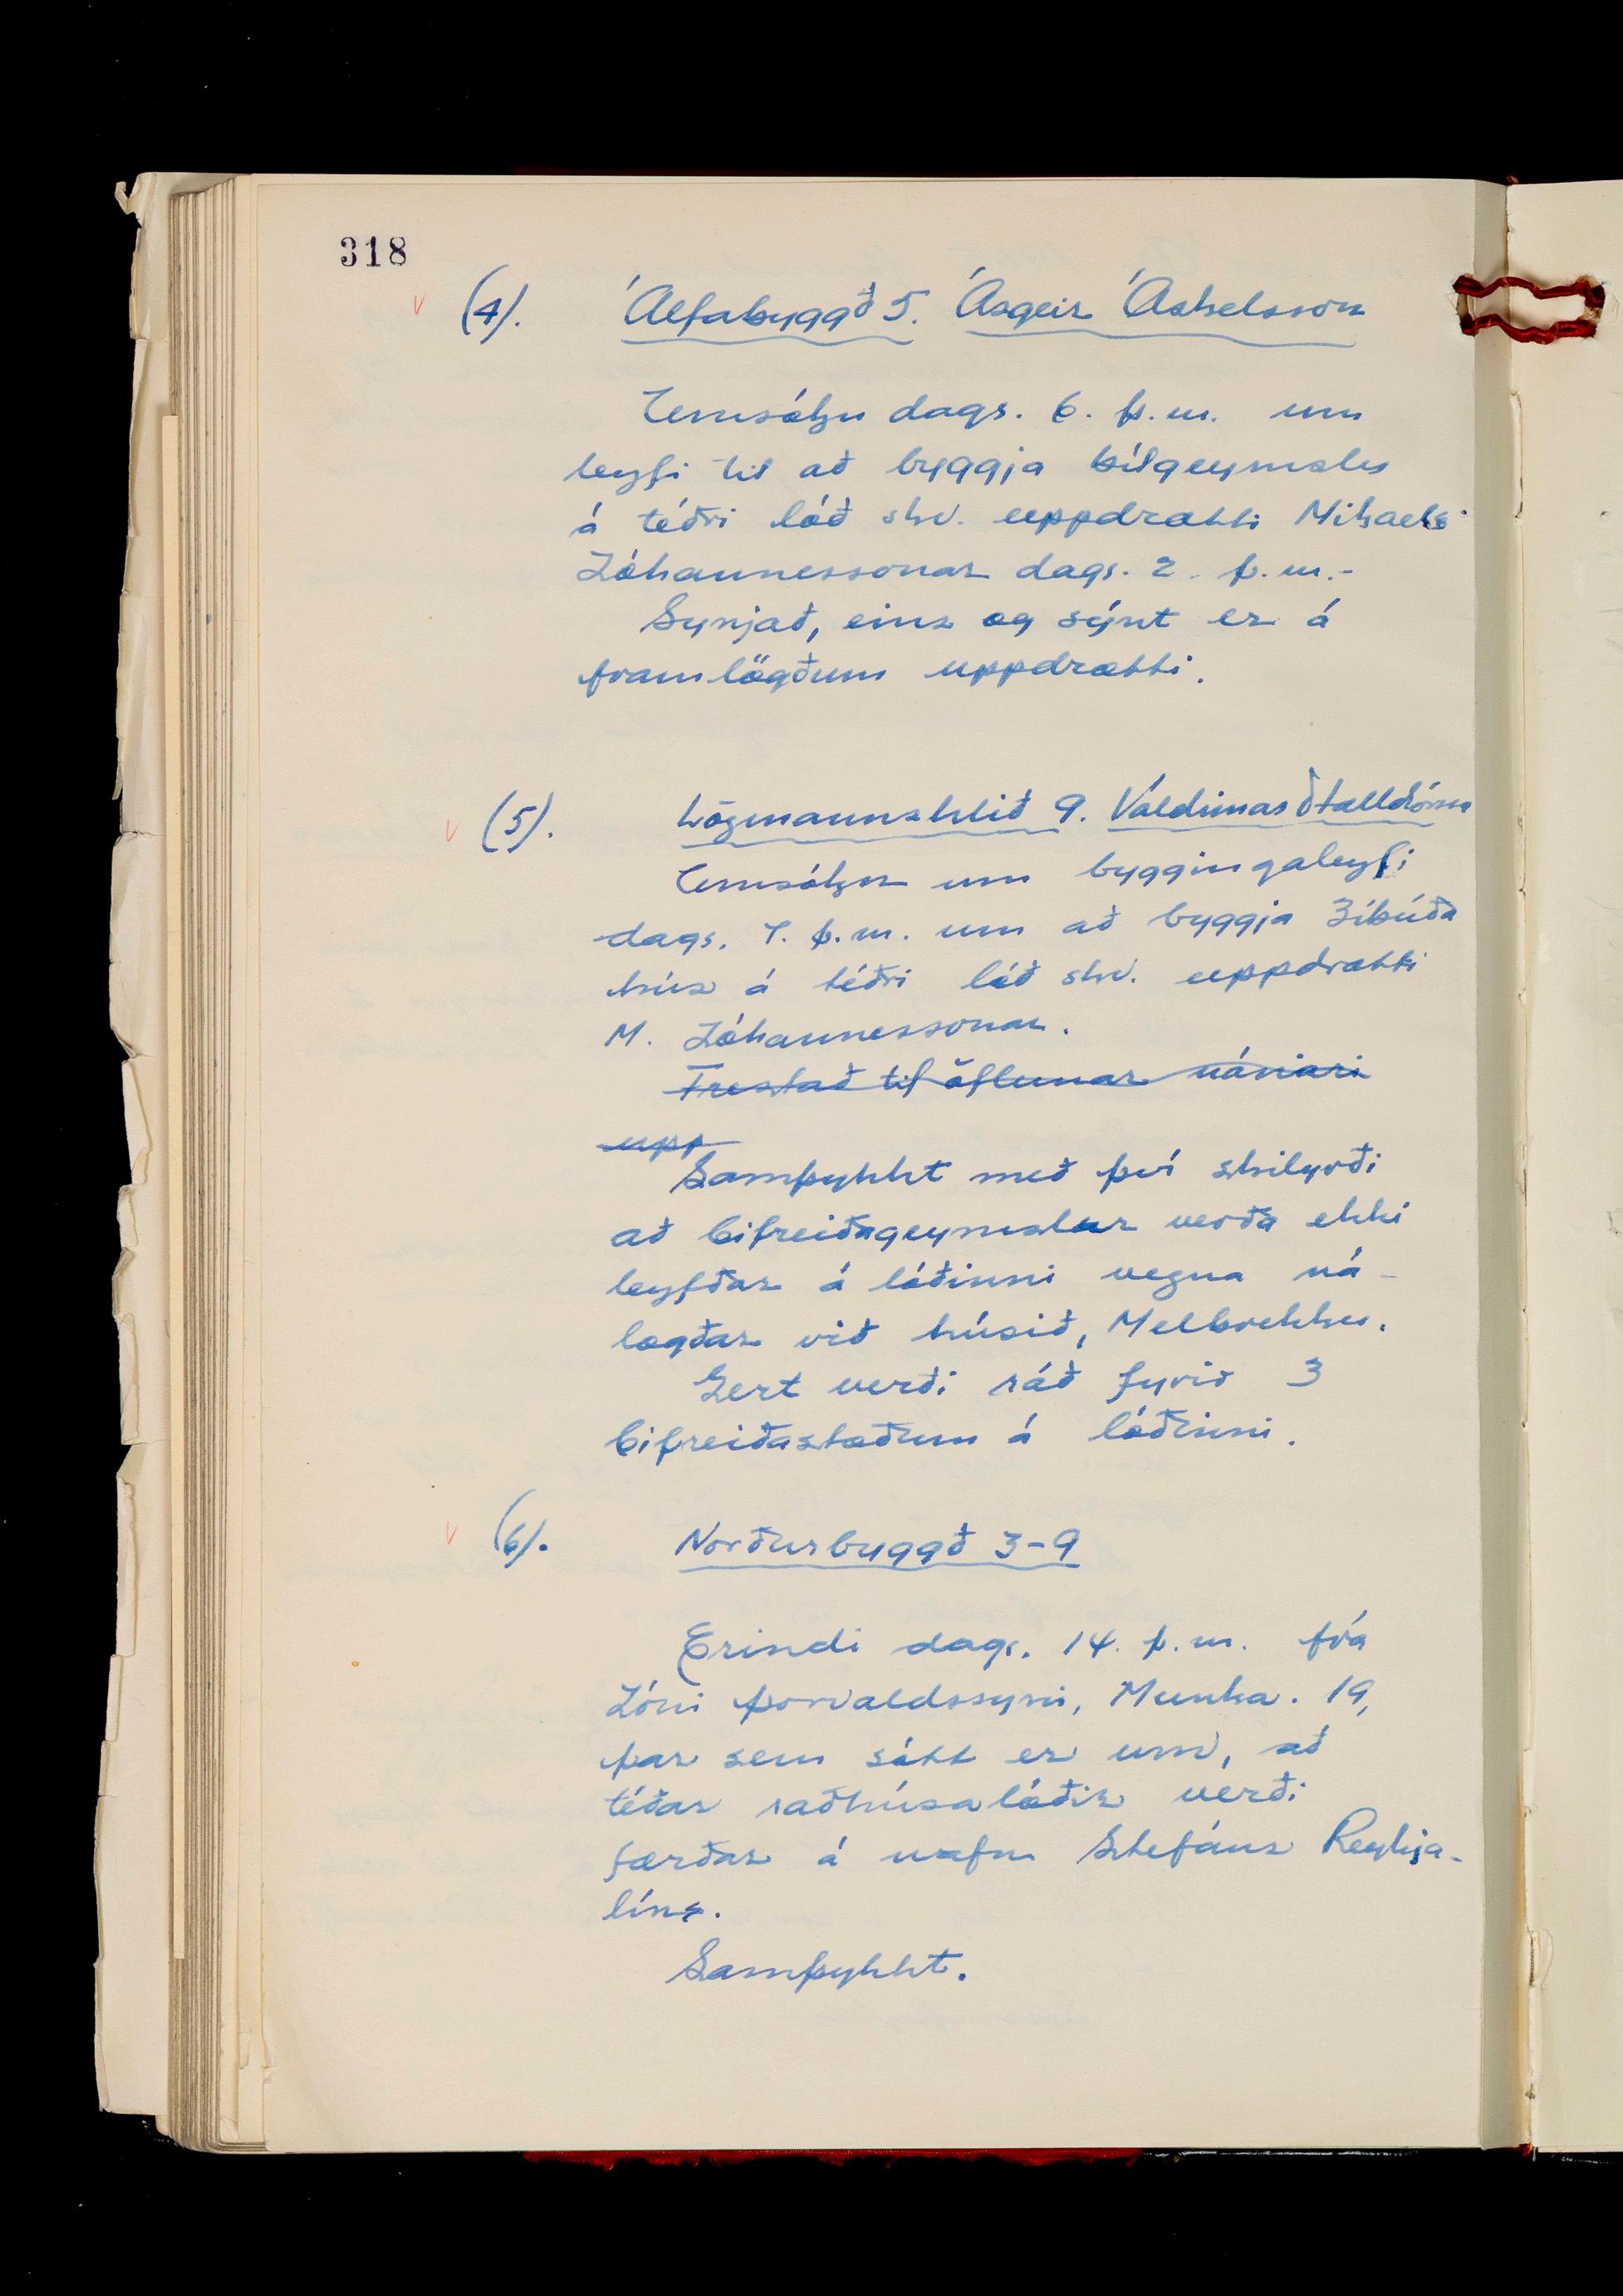 318
(4). Álfabyggð 5. Ásgeir Áskelsson
Umsókn dags. 6. þ.m. um
leyfi til að byggja bílgeymslu
á téðri lóð skv. uppdrætti Mikaels
Jóhannessonar dags. 2. þ.m.-
Synjað, eins og sýnt er á
framlögðum uppdrætti.
(5). Lögmannshlíð 9. Valdimar
Umsókn um byggingaleyfi
dags. 7. þ.m. um að byggja 3íbúða
hús á téðri lóð skv. uppdrætti
M. Jóhannessonar.
Frestað til öflunar nánari
upp
Samþykkt með því skilyrði
að bifreiðageymslur verða ekki
leyfðar á lóðinni vegna ná-
lægðar við húsið, Melbrekku.
Gert verði ráð fyrir 3
bifreiðastæðum á lóðinni.
(6). Norðurbyggð 3-9
Erindi dags. 14. þ.m. frá
Jóni Þorvaldssyni, Munka. 19,
þar sem sótt er um, að
téðar raðhúsalóðir verði
færðar á nafn Stefáns Reykja-
líns.
Samþykkt.